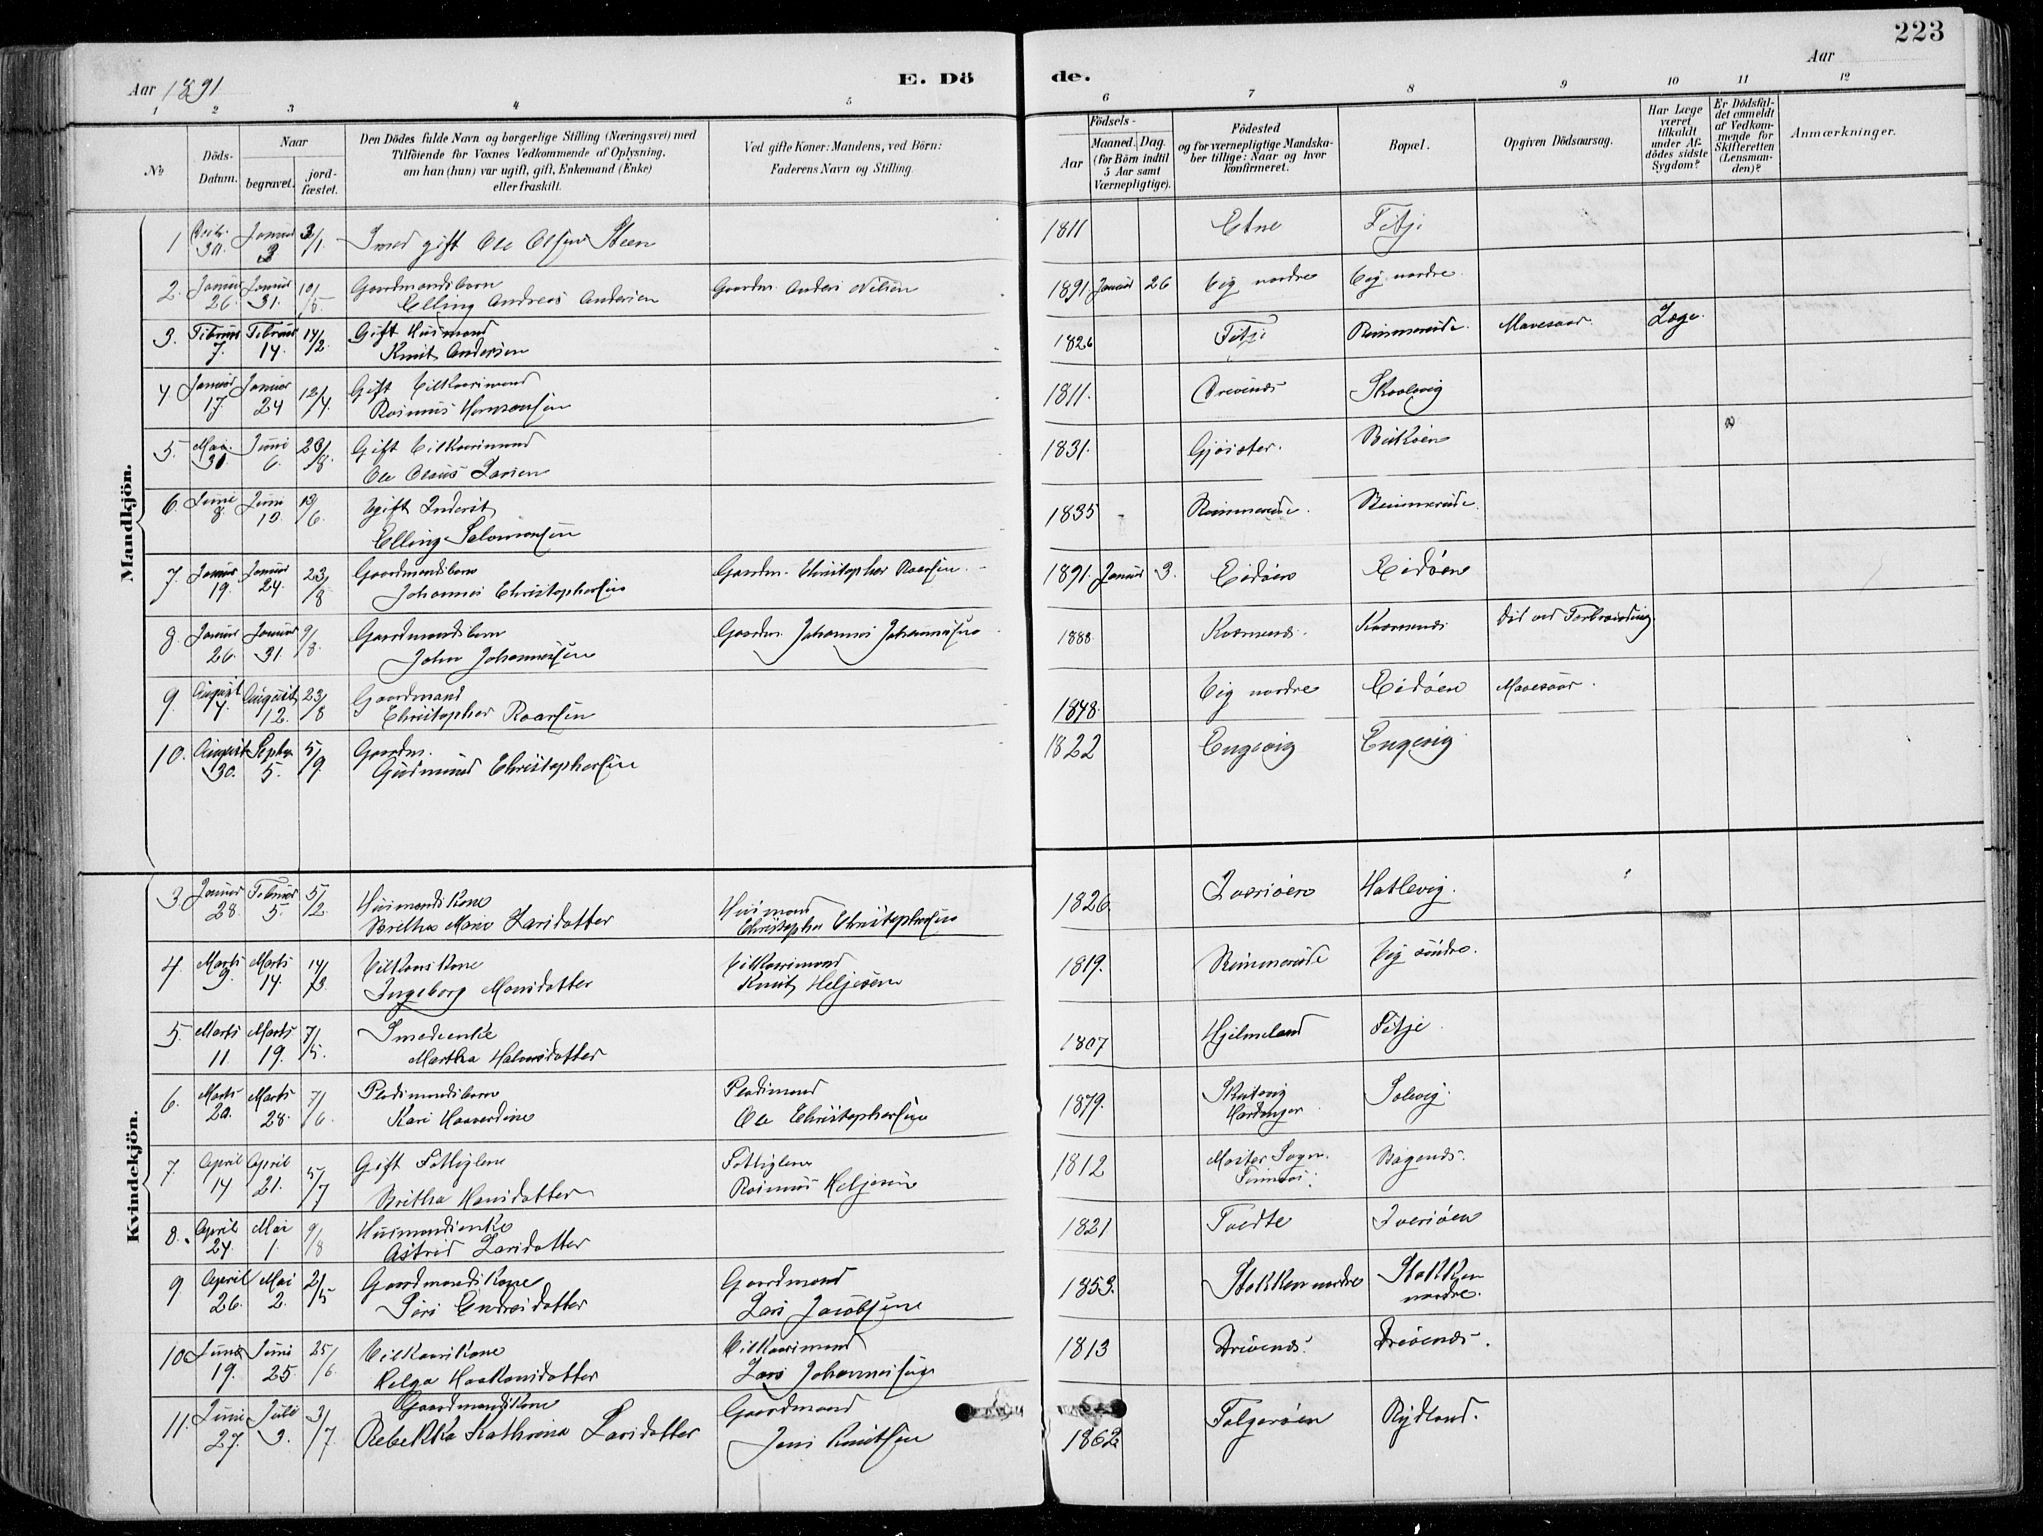 223
Aar 1891
E. Dö
de.
Aar
1 2 3 4 5 6 7 8 9 10 11 12
No
Döds-Datum.
Naar
begravet.
jord-fæstet.
Den Dödes fulde Navn og borgerlige Stilling (Næringsvei) med
Tilföiende for Voxnes Vedkommende af Oplysning,
om han (hun) var ugift, gift, Enkemand (Enke)
eller fraskilt.
Ved gifte Koner: Mandens, ved Börn:
Faderens Navn og Stilling.
Födsels-
Aar
Maaned.
Dag.
(for Börn indtil
5 Aar samt
Værnepligtige).
Födested
og for værnepligtige Mandska-
ber tillige: Naar og hvor
konfirmeret.
Bopæl.
Opgiven Dödsaarsag.
Har Læge
været
tilkaldt
under Af-
dödes sidste
Sygdom?
Er Dödsfal-
det anmeldt
af Vedkom-
mende for
Skifteretten
(Lensman-
den)?
Anmærkninger.
Mandkjön.
1 30. Januar 3 3/1. Smed gift Ole Olsen Steen 1811 Etne Fitje
2. Januar 26. Januar 31. 10/5. Gaardmandsbarn Gaardm. Anders Nilsen 1891. Januar 26 Vig nordre Vig nordre.
Elling Andreas Andersen
3. Februar 7. Februar 14. 14/2. Gift Husmand 1826 Fitje Rimmereide. Mavesaar. Læge.
Knut Andersen
4. Januar 17. Januar 24 12/4. Gift Vilkaarsmand 1811.
Rasmus Hermansen
5. Mai 31. Juni 6. 23/8. Gift Vilkaarsmand 1831.
Ole Claus Larsen
6. Juni 8. Juni 13. /6. Ugift Inderst 1835 Rimmereide. Rimmereide.
Elling Salomonsen
7. Januar 19. Januar 24. 23/8 Gaardmandsbarn Gaardm. Christopher Roarsen. 1891. Januar 3. Eidøen Eidøen
Johannes Christophersen
8. Januar 26. Januar 31. 9/8. Gaardmandsbarn Gaardm. Johannes Johannessen 1888. Kaarenes. Kaarenes Død ved Forbrænding.
John Johannessen
9 August 4. August 12. 23/8 Gaardmand 1848. Vig nordre Eidøen Mavesaar.
Christopher Roarsen
10. August 30. Septbr. 5. 5/9. Gaardm. 1822 Engevig Engevig
Gudmund Christophersen
Kvindekjön.
3. Januar 28. Februar 5. 5/2. Husmandskone Husmand 1826. Iversøen Hatlevig.
Brithe Marie Larsdatter Christopher Christophersen
4. Marts 9. Marts 14. 14/3. Vilkaarskone Vilkaarsmand 1819. Rimmereide Vig søndre.
Ingeborg Monsdatter Knut Heljesen
5. Marts 11. Marts 19. 7/5. Smedenke 1807 Hjelmeland Fitje.
Martha Halvorsdatter
6. Marts 20. Marts 28. 7/6. Pladsmandsbarn Pladsmand 1879. Hardanger Solevig.
Kari Haaverdine Ole Christophersen
7. April 14 April 21. 5/7 Gift Fattiglem Fattiglem 1812 Moster Sogn.
Britha Hansdatter Rasmus Heljesen
8. April 24. Mai 1. 9/8 Husmandsenke 1821 Tvedte Iversøen
Astrid Larsdatter
9 April 26. Mai 2. 21/5 Gaardmandskone Gaardmand 1853. Stokken nordre Stokken nordre.
Siri Endresdatter Lars Jacobsen
10. Juni 19. Juni 25. 25/6. Vilkaarskone Vilkaarsmand 1813
Helga Haakonsdatter Lars Johannessen
11. Juni 27. Juli 3. 3/7. Gaardmandskone Gaardmand 1862 Folgerøen Rydland.
Rebekka Kathrina Larsdatter Jens Knutsen